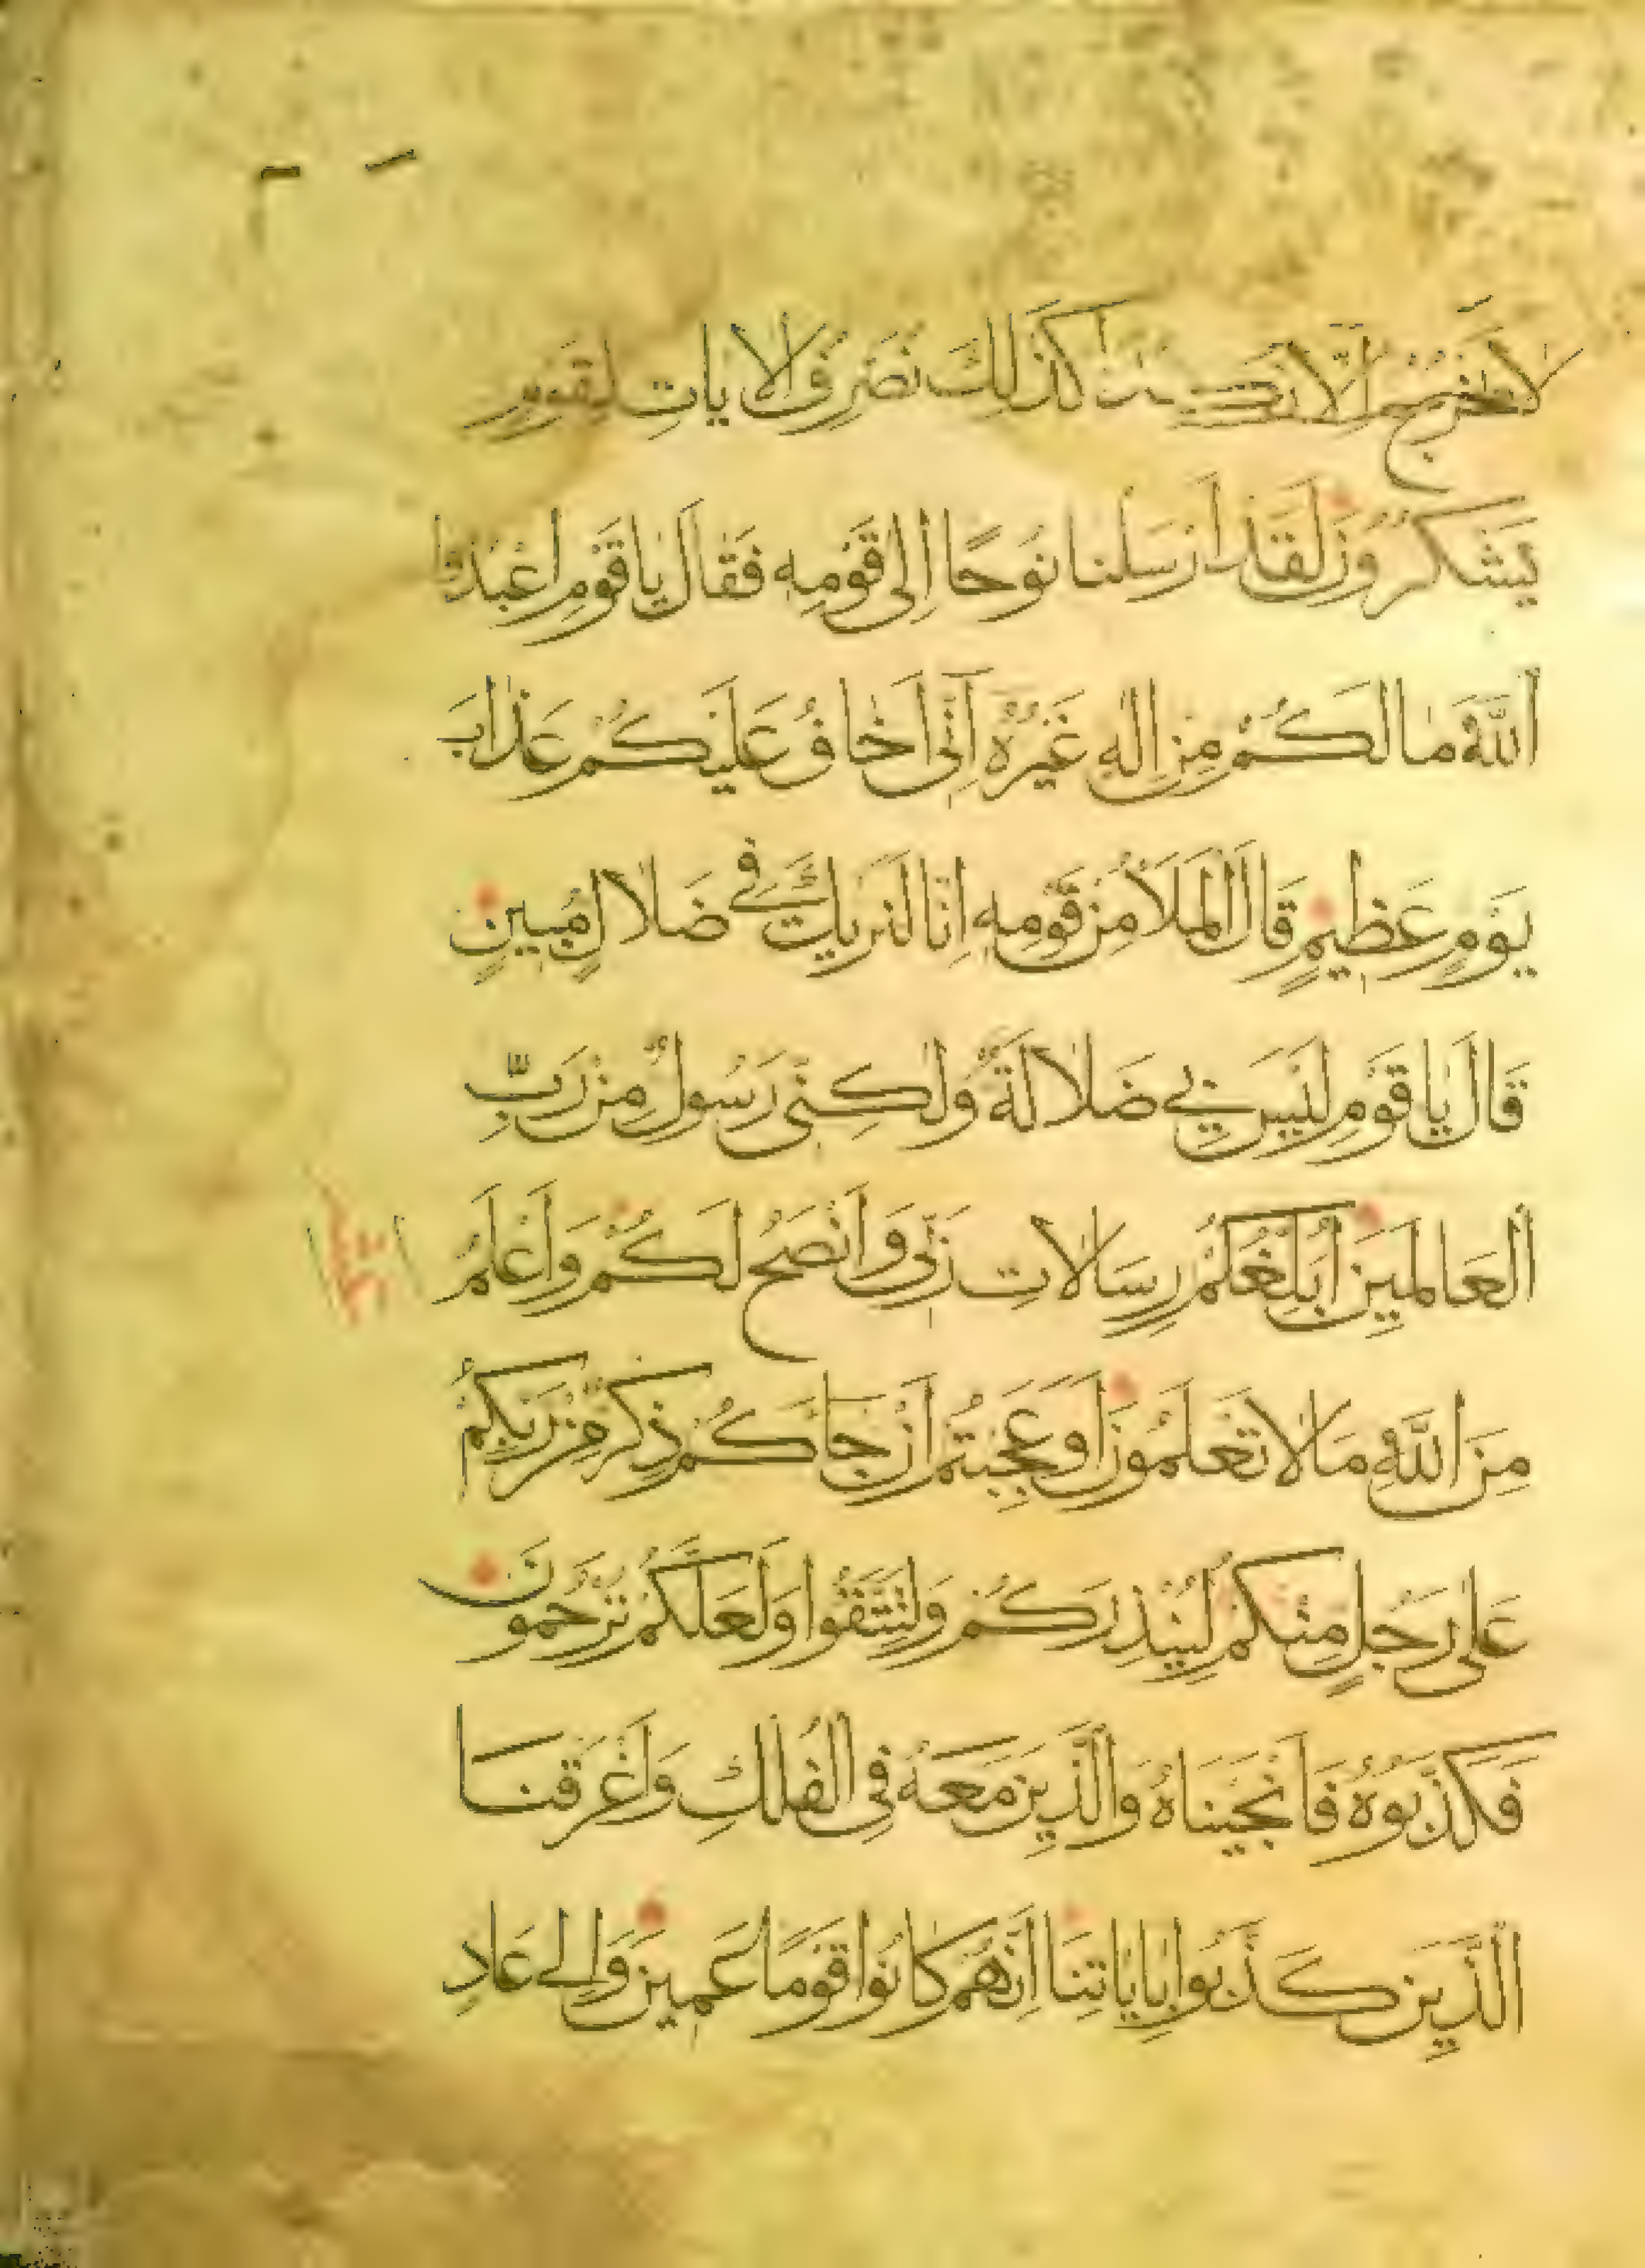 لَا يَخْرُجُ اِلَّا نَكِدًا كَذَلِكَ نُصَرِّفُ الْاٰيَاتِ لِقَوْمٍ
يَشْكُرُونَ لَقَدْ اَرْسَلْنَا نُوحًا اِلَى قَوْمِهِ فَقَالَ يَا قَوْمِ اعْبُدُوا
اَللّٰهَ مَا لَكُمْ مِنْ اِلٰهٍ غَيْرُهُ اِنِّى اَخَافُ عَلَيْكُمْ عَذَابَ
يَوْمٍ عَظِيمٍ قَالَ الْمَلَاُ مِنْ قَوْمِهِ اِنَّا لَنَرٰيكَ فِى ضَلَالٍ مُبِينٍ
قَالَ يَا قَوْمِ لَيْسَ بِى ضَلَالَةٌ وَلٰكِنِّى رَسُولٌ مِنْ رَبِّ
اَلْعَالَمِينَ اُبَلِّغُكُمْ رِسَالَاتِ رَبِّى وَاَنْصَحُ لَكُمْ وَاَعْلَمُ
مِنَ اللّٰهِ مَا لَا تَعْلَمُونَ اَوَعَجِبْتُمْ اَنْ جَاءَكُمْ ذِكْرٌ مِنْ رَبِّكُمْ
عَلٰى رَجُلٍ مِنْكُمْ لِيُنْذِرَكُمْ وَلِتَتَّقُوا وَلَعَلَّكُمْ تُرْحَمُونَ
فَكَذَّبُوهُ فَاَنْجَيْنَاهُ وَالَّذِينَ مَعَهُ فِى الْفُلْكِ وَاَغْرَقْنَا
اَلَّذِينَ كَذَّبُوا بِاٰيَاتِنَا اِنَّهُمْ كَانُوا قَوْمًا عَمِينَ وَاِلٰى عَادٍ